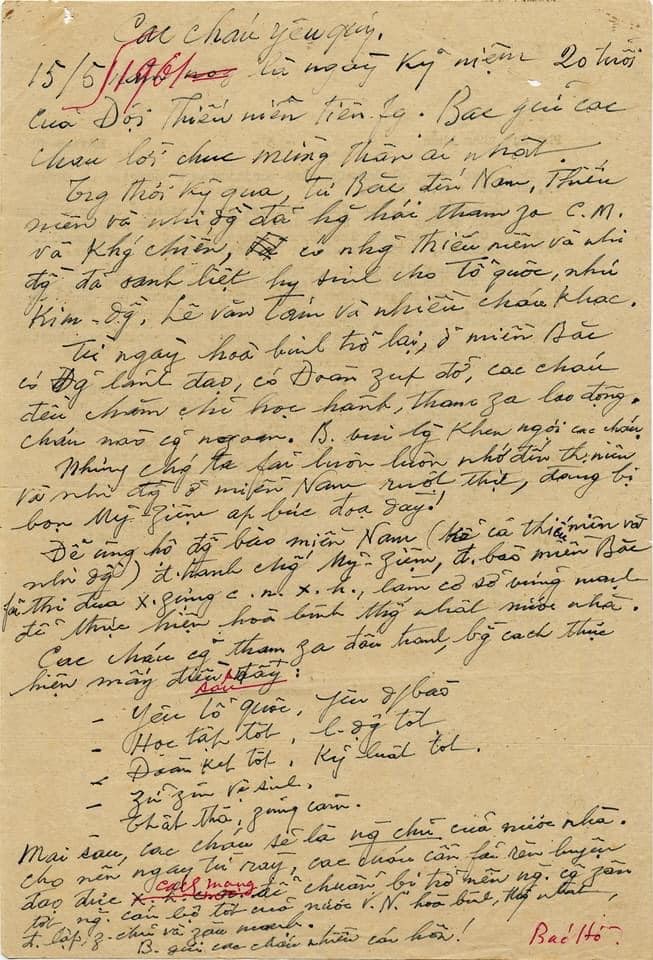 Các cháu yêu quý,
15/5/1961 là ngày kỷ niệm 20 tuổi
của Đội Thiếu niên tiền fg. Bác gửi các
cháu lời chúc mừng thân ái nhất.
Trg thời kỳ qua, từ Bắc đến Nam, Thiếu
niên và nhi đg đã hg hái tham za C.M.
và Khg chiến, có nhg thiếu niên và nhi
đg đã oanh liệt hy sinh cho Tổ quốc, như
Kim-đg, Lê văn Tám và nhiều cháu khác.
Từ ngày hoà bình trở lại, ở miền Bắc
có Đg lãnh đạo, có Đoàn zúp đỡ, các cháu
đều chăm chỉ học hành, tham za lao động,
cháu nào cg ngoan. B. vui lg khen ngợi các cháu.
Nhưng chg ta fải luôn luôn nhớ đến th. niên
và nhi đg ở miền Nam ruột thịt, đang bị
bọn Mỹ Ziệm áp bức đoạ đày!
Để ủng hộ đg bào miền Nam (kể cả thiếu niên và
nhi đg) đ. tranh chg Mỹ-Ziệm, đ. bào miền Bắc
fải thi đua x. zựng c. n. x. h., làm cơ sở vững mạnh
để thực hiện hoà bình thg nhất nước nhà.
Các cháu cg tham za đấu tranh, bg cách thực
hiện mấy điều sau đây:
- Yêu tổ quốc, yêu đ/bào
- Học tập tốt, l. đg tốt
- Đoàn kết tốt, kỷ luật tốt.
- Zữ zìn vệ sinh.
- Thật thà, zũng cảm.
Mai sau, các cháu sẽ là ng chủ của nước nhà.
Cho nên ngay từ rày, các cháu cần fải rèn luyện
đạo đức cách mạng để chuẩn bị trở nên ng. cg zân
tốt, ng. cán bộ tốt của nước V.N. hoà bình, thg nhất,
đ. lập, z. chủ và zàu mạnh.
B. gửi các cháu nhiều cái hôn!
Bác Hồ.